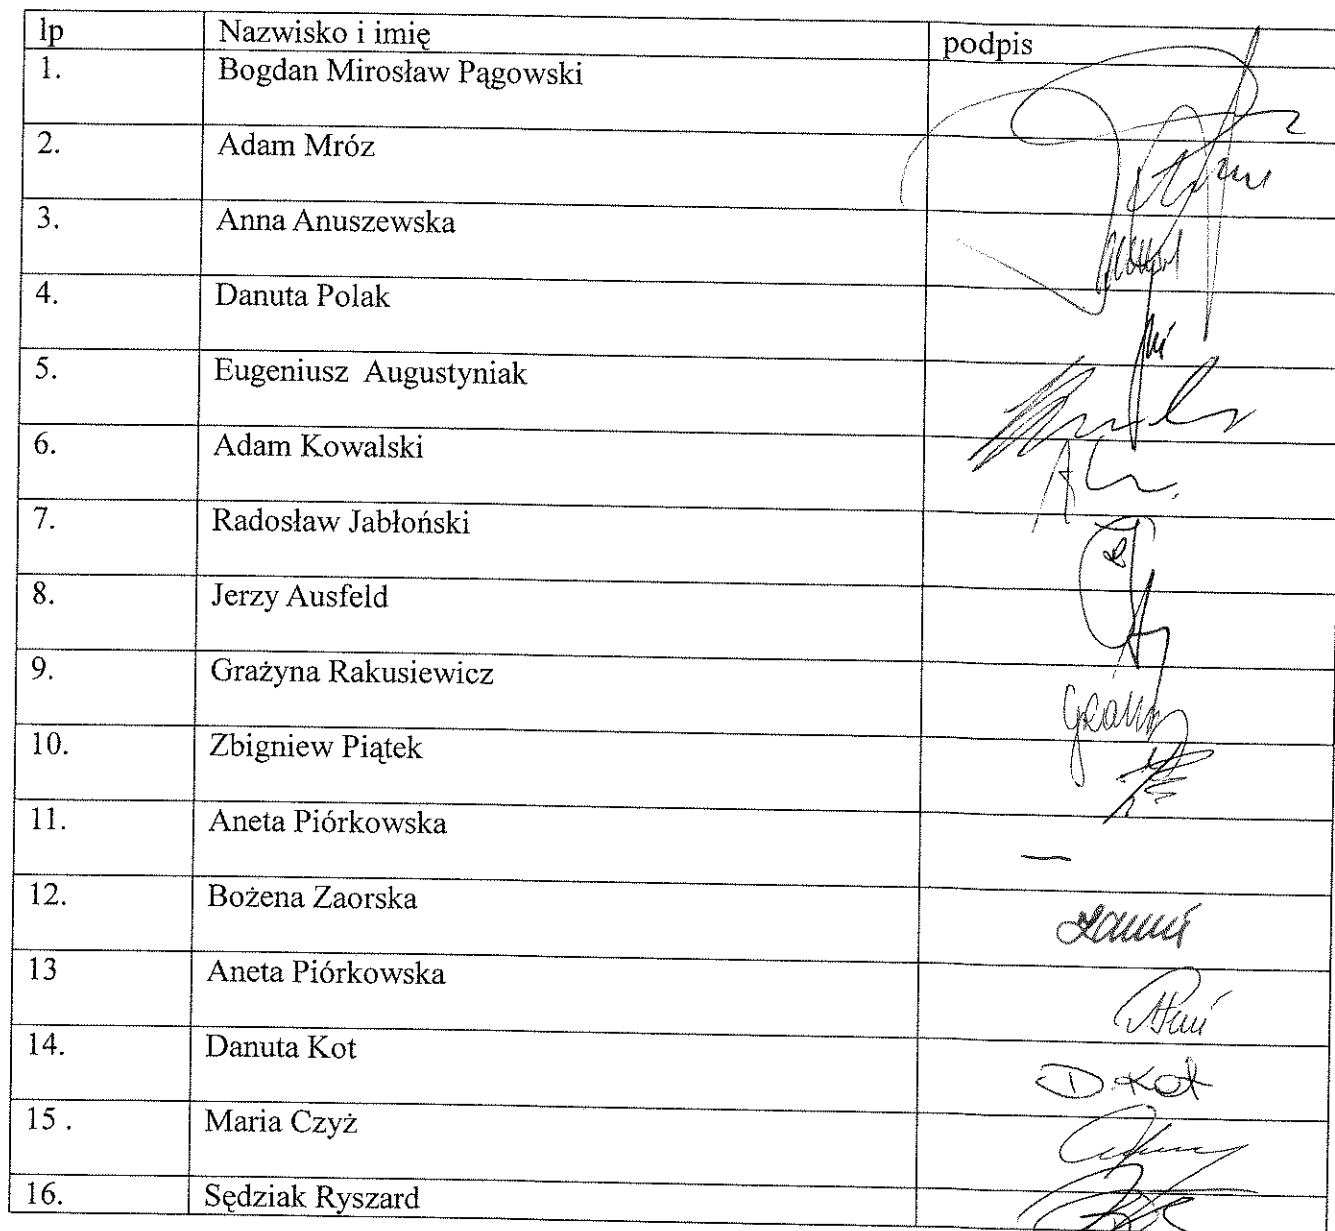 lp Nazwisko i imię podpis
1. Bogdan Mirosław Pągowski
2. Adam Mróz
3. Anna Anuszewska
4. Danuta Polak
5. Eugeniusz Augustyniak
6. Adam Kowalski
7. Radosław Jabłoński
8. Jerzy Ausfeld
9. Grażyna Rakusiewicz
10. Zbigniew Piątek
11. Aneta Piórkowska —
12. Bożena Zaorska
13 Aneta Piórkowska
14. Danuta Kot D Kot
15 . Maria Czyż
16. Sędziak Ryszard